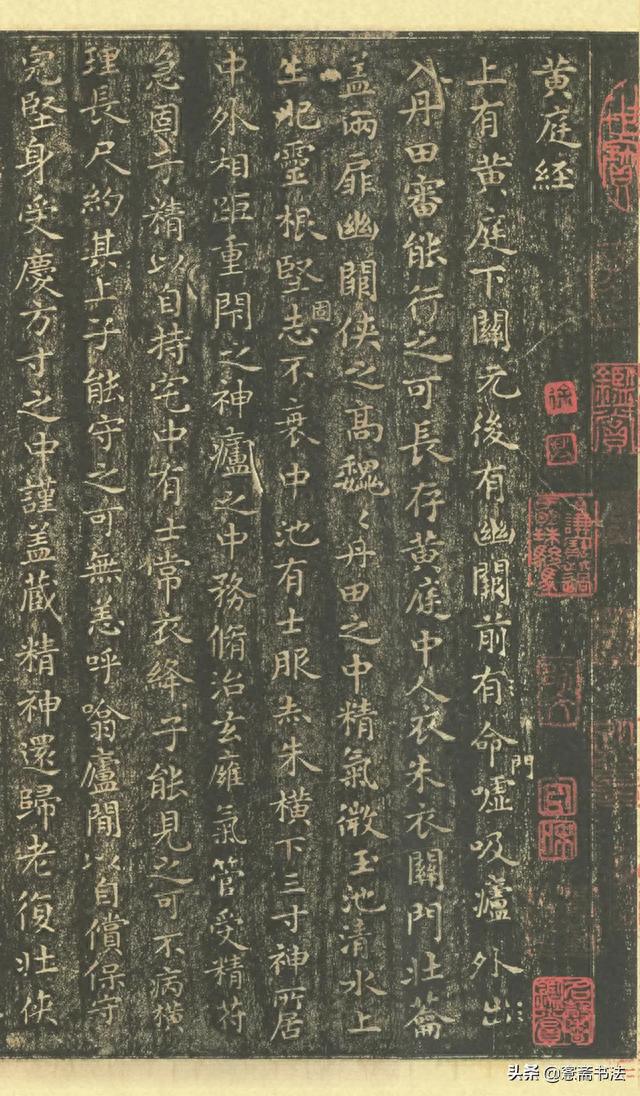 黄庭経
上有黄庭下關元後有幽闕前有命門嘘吸廬外出
入丹田審能行之可長存黄庭中人衣朱衣關門壯蘥
盖兩扉幽闕俠之高巍々丹田之中精氣微玉池清水上
生肥靈根堅固志不衰中池有士服赤朱横下三寸神所居
中外相距重閇之神廬之中務脩治玄㢕氣管受精符
急固子精以自持宅中有士常衣絳子能見之可不病横
理長尺約其上子能守之可無恙呼噏廬閒以自償保守
完堅身受慶方寸之中謹盖蔵精神還歸老復壯俠
头条 @愙斋书法